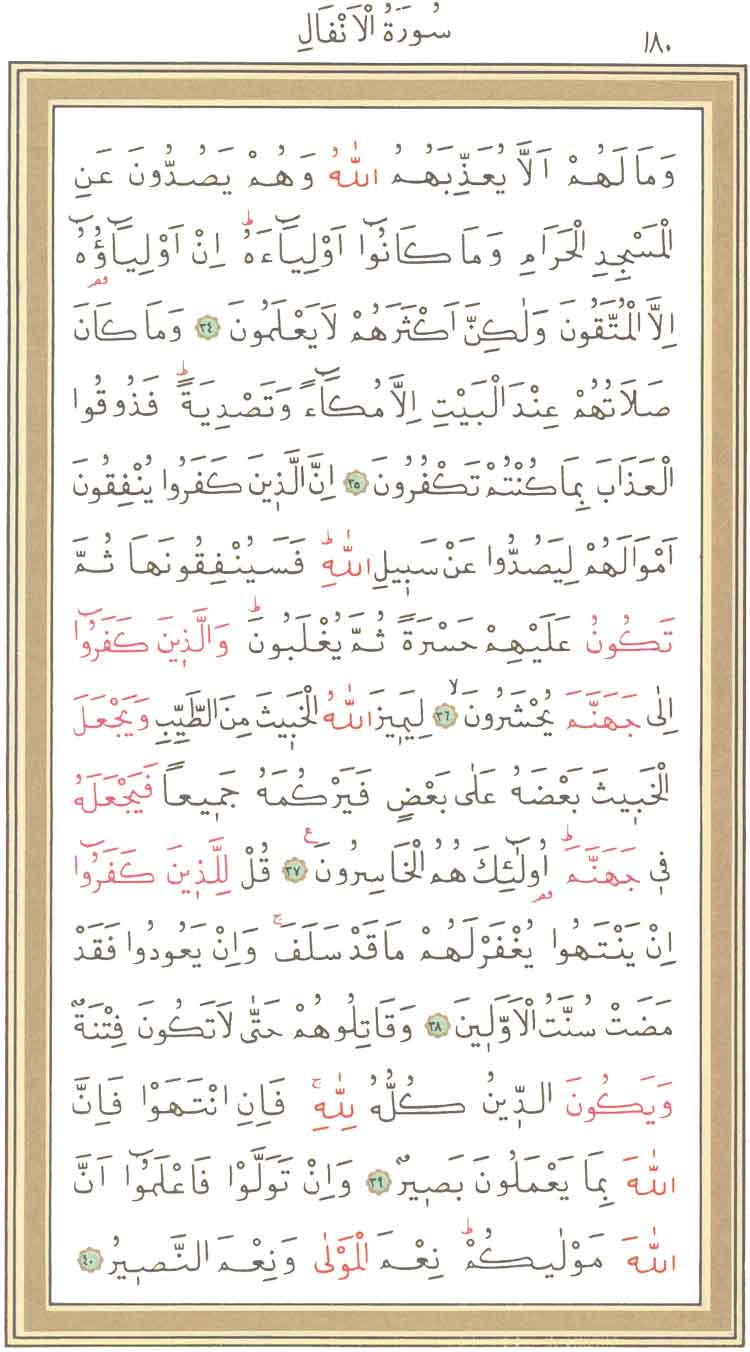 سُورَةُ الْاَنْفَالِ
١٨٠
وَمَا لَهُمْ اَلَّا يُعَذِّبَهُمُ اللّٰهُ وَهُمْ يَصُدُّونَ عَنِ
الْمَسْجِدِ الْحَرَامِ وَمَا كَانُٓوا اَوْلِيَٓاءَهُۜ اِنْ اَوْلِيَٓاؤُ۬هُٓ
اِلَّا الْمُتَّقُونَ وَلٰكِنَّ اَكْثَرَهُمْ لَا يَعْلَمُونَ ﴿٣٤﴾ وَمَا كَانَ
صَلَاتُهُمْ عِنْدَ الْبَيْتِ اِلَّا مُكَٓاءً وَتَصْدِيَةًۜ فَذُوقُوا
الْعَذَابَ بِمَا كُنْتُمْ تَكْفُرُونَ ﴿٣٥﴾ اِنَّ الَّذ۪ينَ كَفَرُوا يُنْفِقُونَ
اَمْوَالَهُمْ لِيَصُدُّوا عَنْ سَب۪يلِ اللّٰهِۜ فَسَيُنْفِقُونَهَا ثُمَّ
تَكُونُ عَلَيْهِمْ حَسْرَةً ثُمَّ يُغْلَبُونَۜ وَالَّذ۪ينَ كَفَرُٓوا
اِلٰى جَهَنَّمَ يُحْشَرُونَۙ ﴿٣٦﴾ لِيَم۪يزَ اللّٰهُ الْخَب۪يثَ مِنَ الطَّيِّبِ وَيَجْعَلَ
الْخَب۪يثَ بَعْضَهُ عَلٰى بَعْضٍ فَيَرْكُمَهُ جَم۪يعاً فَيَجْعَلَهُ
ف۪ي جَهَنَّمَۜ اُو۬لٰٓئِكَ هُمُ الْخَاسِرُونَ۟ ﴿٣٧﴾ قُلْ لِلَّذ۪ينَ كَفَرُٓوا
اِنْ يَنْتَهُوا يُغْفَرْ لَهُمْ مَا قَدْ سَلَفَۚ وَاِنْ يَعُودُوا فَقَدْ
مَضَتْ سُنَّتُ الْاَوَّل۪ينَ ﴿٣٨﴾ وَقَاتِلُوهُمْ حَتّٰى لَا تَكُونَ فِتْنَةٌ
وَيَكُونَ الدّ۪ينُ كُلُّهُ لِلّٰهِۚ فَاِنِ انْتَهَوْا فَاِنَّ
اللّٰهَ بِمَا يَعْمَلُونَ بَص۪يرٌ ﴿٣٩﴾ وَاِنْ تَوَلَّوْا فَاعْلَمُٓوا اَنَّ
اللّٰهَ مَوْلٰيكُمْۜ نِعْمَ الْمَوْلٰى وَنِعْمَ النَّص۪يرُ ﴿٤٠﴾